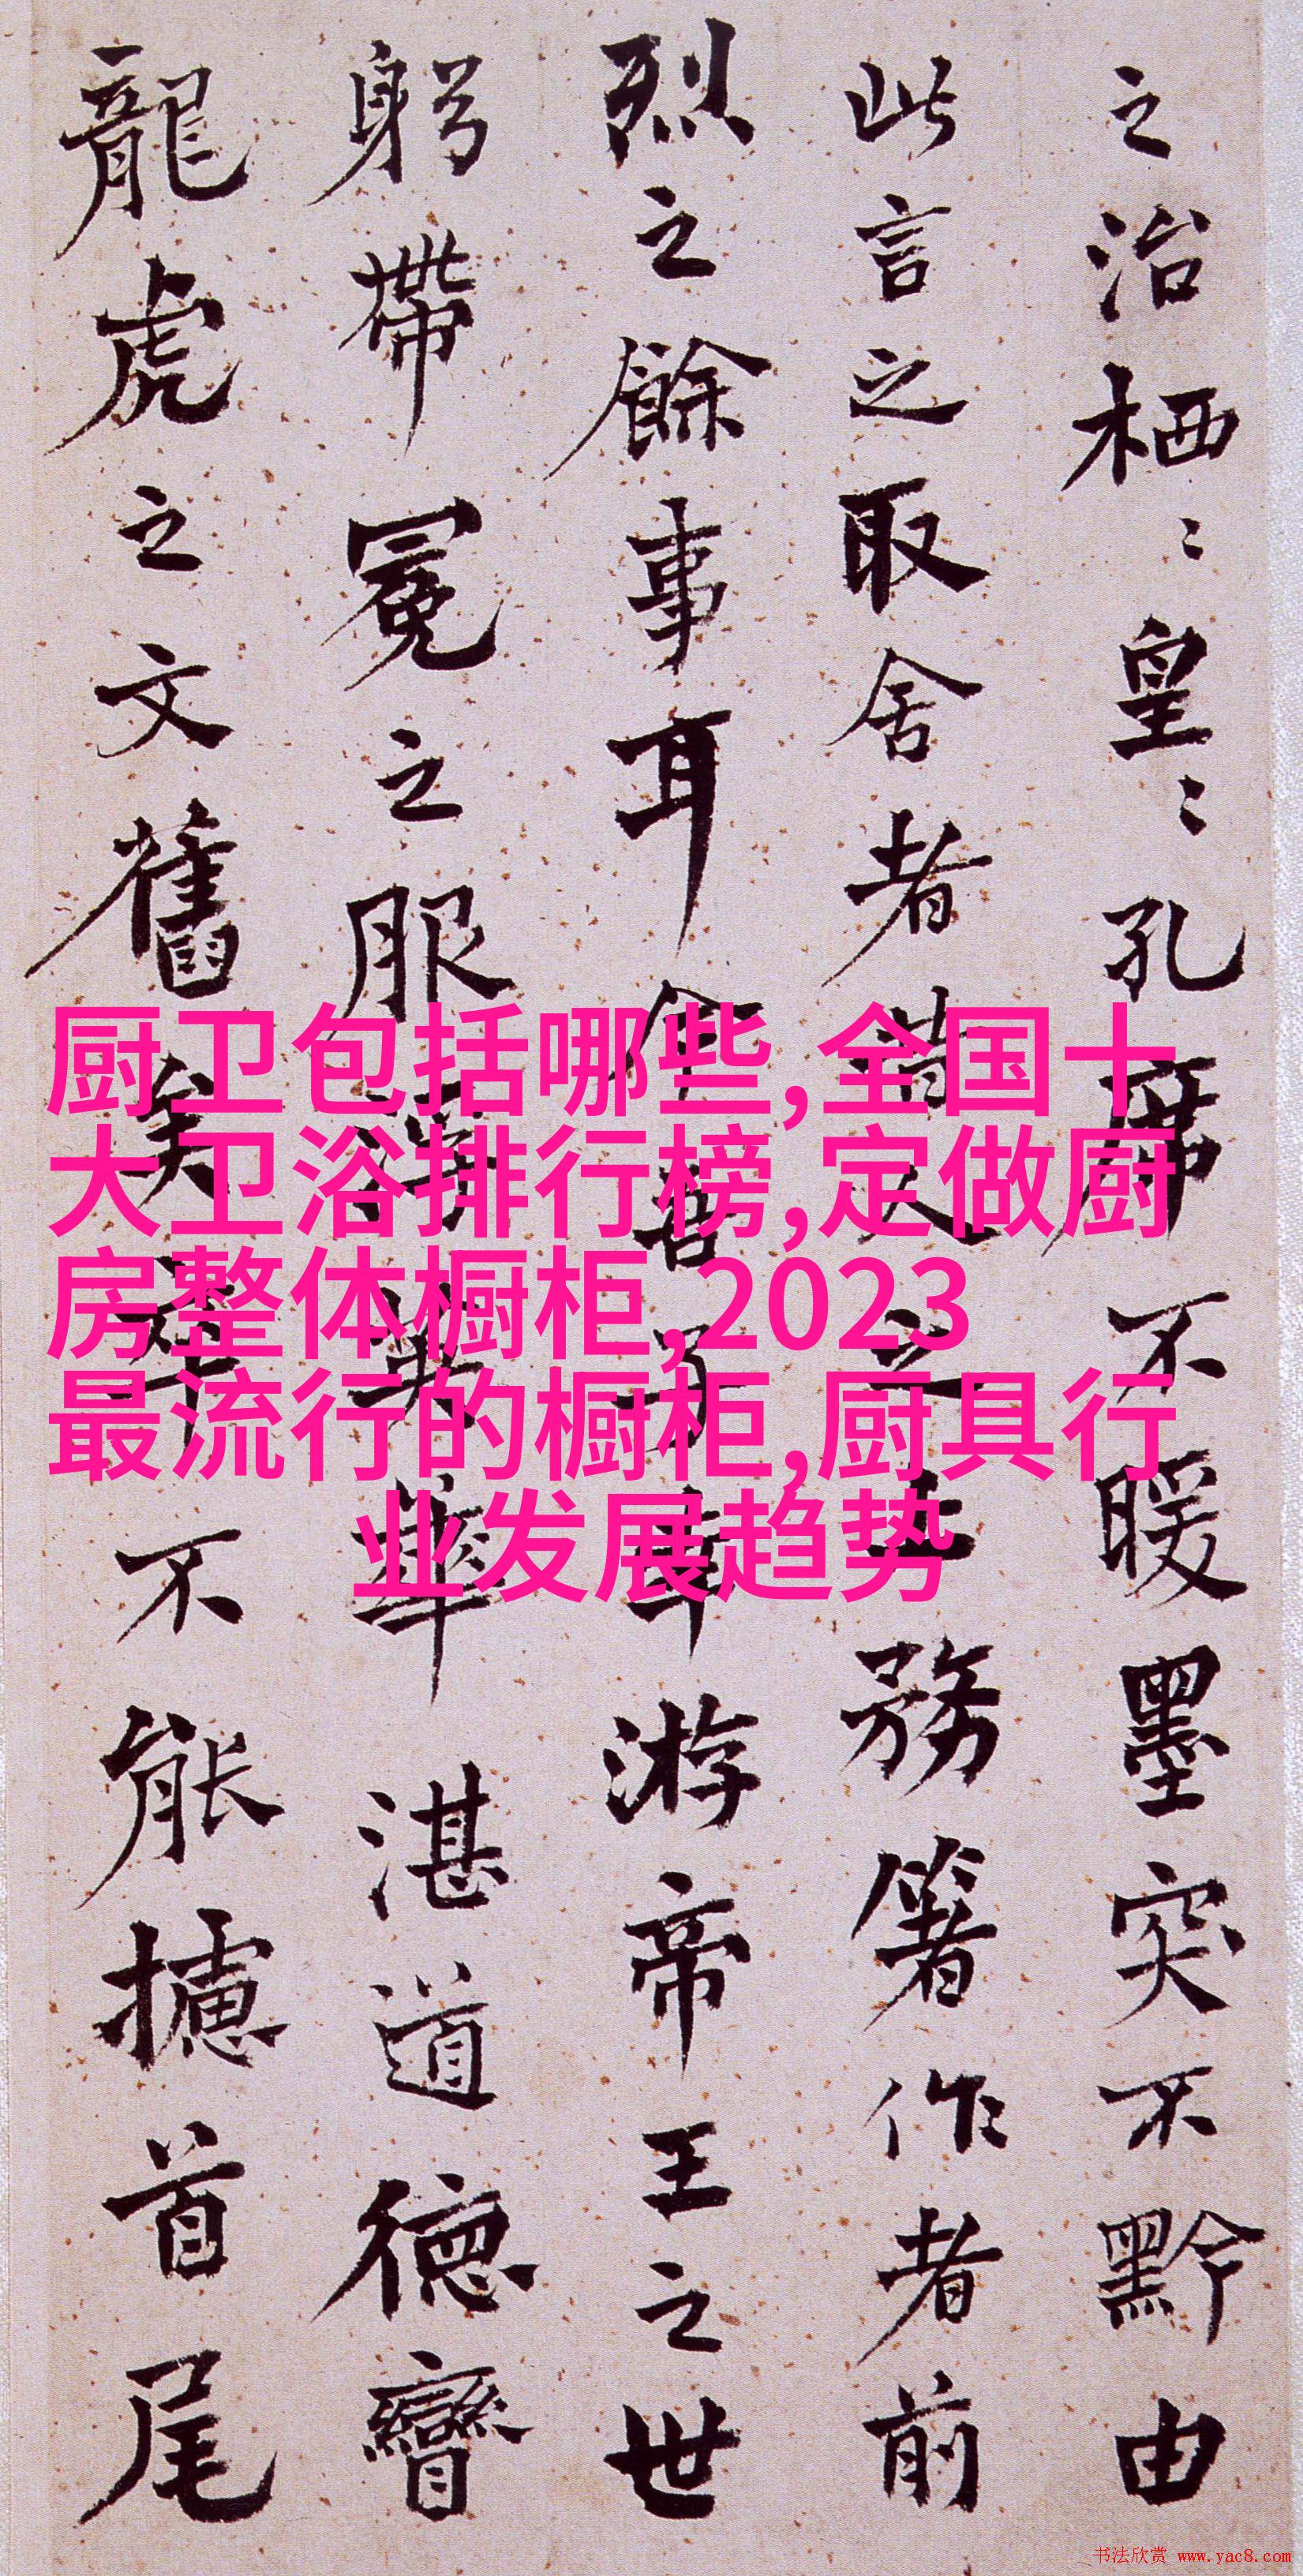 之治栖〻皇〻孔席不暖墨突不黔由
此言之取舍者昔人之上務箸作者前
烈之餘事耳今吾子幸游帝王之世
躬帶冕之服浮英華湛道德矕
龍虎之文舊矣卒不能攄首尾
厨卫包括哪些,全国十
大卫浴排行榜,定做厨
房整体橱柜,2023
最流行的橱柜,厨具行
业发展趋势
书法欣赏 www.yac8.com